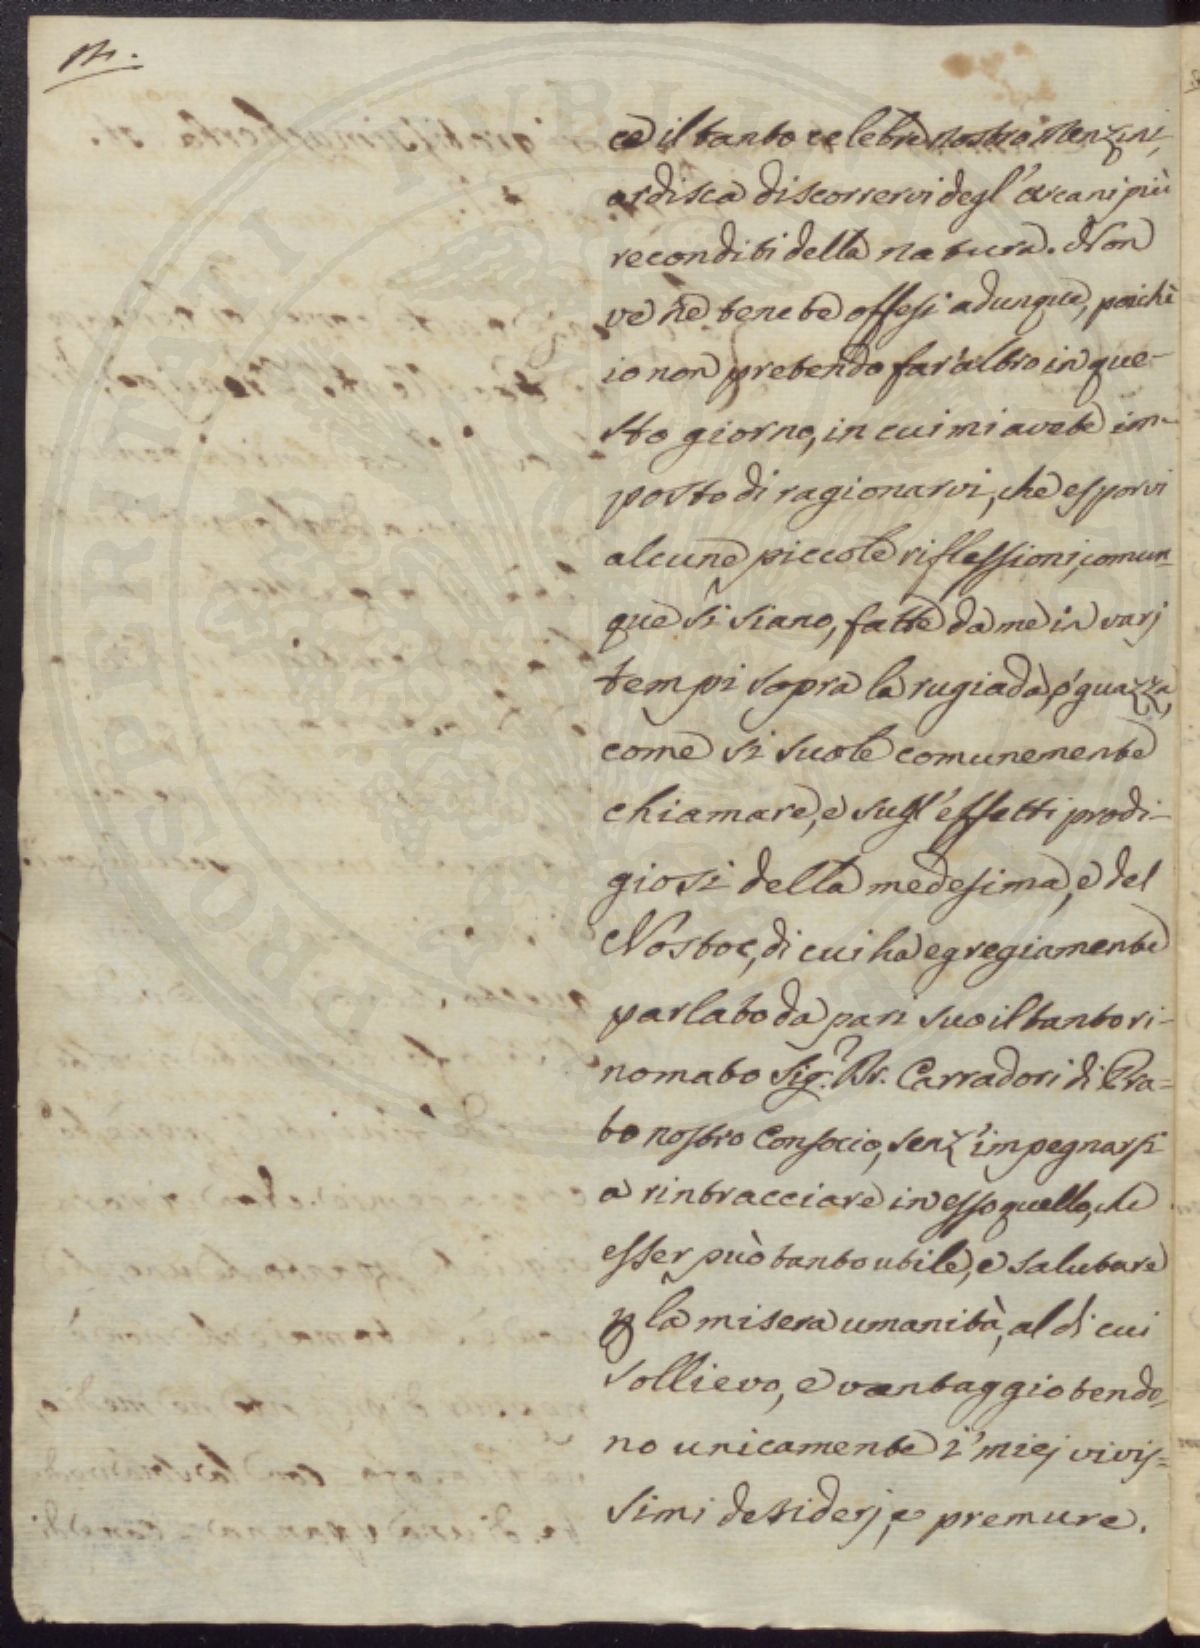 ce il tanto celebre nostro Menzini,
ardisca discorrervi degl' arcani più
reconditi della natura. Non
ve ne tenete offesi adunque, poichè
io non pretendo far' altro in que-
sto giorno, in cui mi avete im-
posto di ragionarvi, che esporvi
alcune piccole riflessioni, comun-
que si siano, fatte da me in varj
tempi sopra la rugiada, o' guazza,
come si suole comunemente
chiamare, e sugl' effetti prodi-
giosi della medesima, e del
Nostoc, di cui ha egregiamente
parlato da pari suo il tanto ri-
nomato Sig.r Dr. Carradori di Pra=
to nostro Consocio, senz' impegnarsi
a rintracciare in esso quello, che
esser può tanto utile, e salutare
p la misera umanità, al di cui
sollievo, e vantaggio tendo-
no unicamente i' miej vivis=
simi desiderj, e premure.